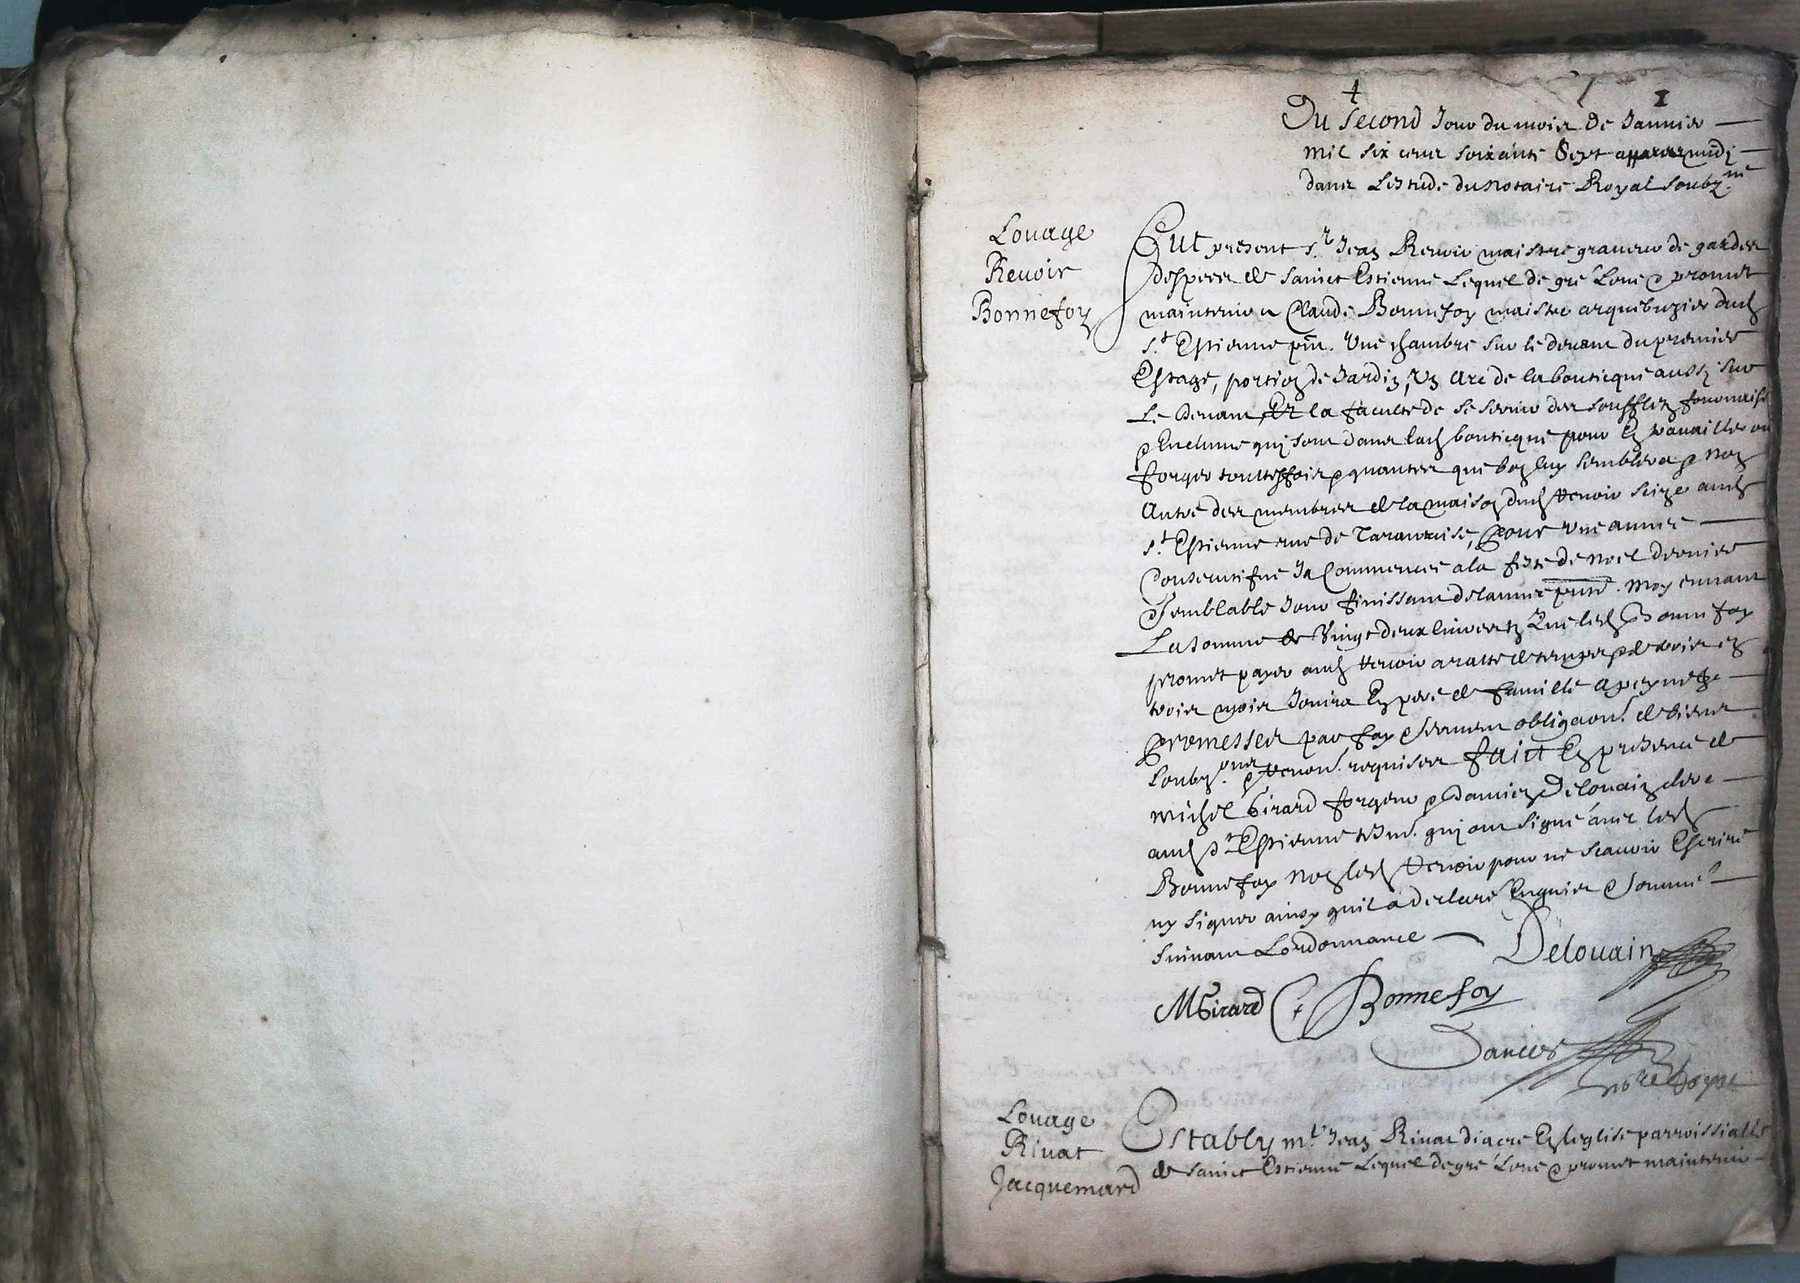 1
Du second Jour du mois de Janvier
mil six cens soixante sept apres midy
dans Lestude du notaire Royal soubz.ne
Louage
Renoir
Bonnefoy
Fut present s.r Jean Renoir maistre graveur de gardes
despees de sainct Estienne Lequel de gré Loue & promet
maintenir a Claude Bonnefoy maistre arquebuzier dud
s.t Estienne pnt. Une chambre sur le devant du premier
Estage, portion de Jardin, Un Arc de la bouticque aussy sur
Le devant, Et la faculté de se servir des soufflets fournaise
& Enclume qui sont dans lad bouticque pour y travailler ou
forger touttesfois & quantes que bon luy semblera & non
Autre des membres de la maison dud Renoir scize aud
s.t Estienne rue de Tarantaise, Pour Une année
Consecutifve Ja Commencée a la feste de Noel dernier
Semblable Jour finissant de lannée pnte. Moyennant
La somme de Vingt deux livres Que led Bonnefoy
promet payer aud Renoir a ratte de temps & de trois en
trois mois Jouira En pere de famille a peyne &c
Promesses par foy & serment obligaon. de biens
soubz.ons & renon. requises faict En presence de
michel Girard forgeur & Damien Delouain clerc
aud St Estienne tesm. qui ont signé avec led
Bonnefoy Non led Renoir pour ne scavoir Escrire
ny signer ainsy quil a declaré Enquis & sommé
suivant Lordonnance
Delouain
MGirard C Bonnefoy
Dancer
no.re Royal
Louage
Rivat
Jacquemard
Estably m.e Jean Rivat diacre En leglise parroissialle
de sainct Estienne Lequel de gré Loue & promet maintenir